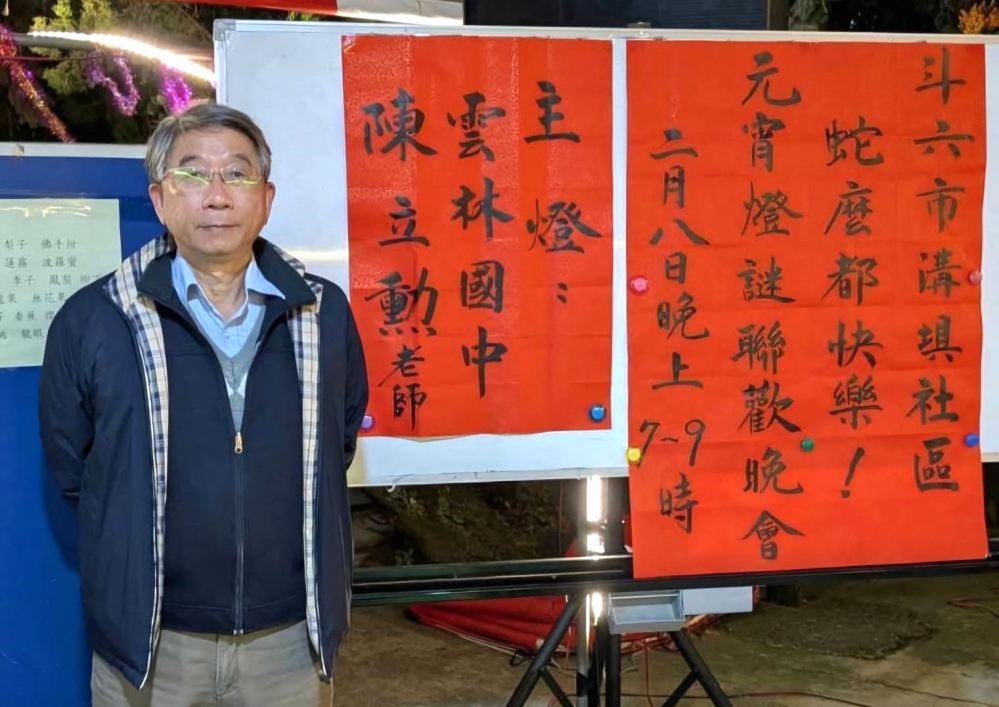 斗六市溝埧社區
蛇麼都快樂！
元宵燈謎聯歡晚會
二月八日晚上7~9時
主燈：
雲林國中
陳立勳老師
梨子 佛手柑
蓮霧 波羅蜜
李子 鳳梨
果 無花果
子 香蕉
龍眼